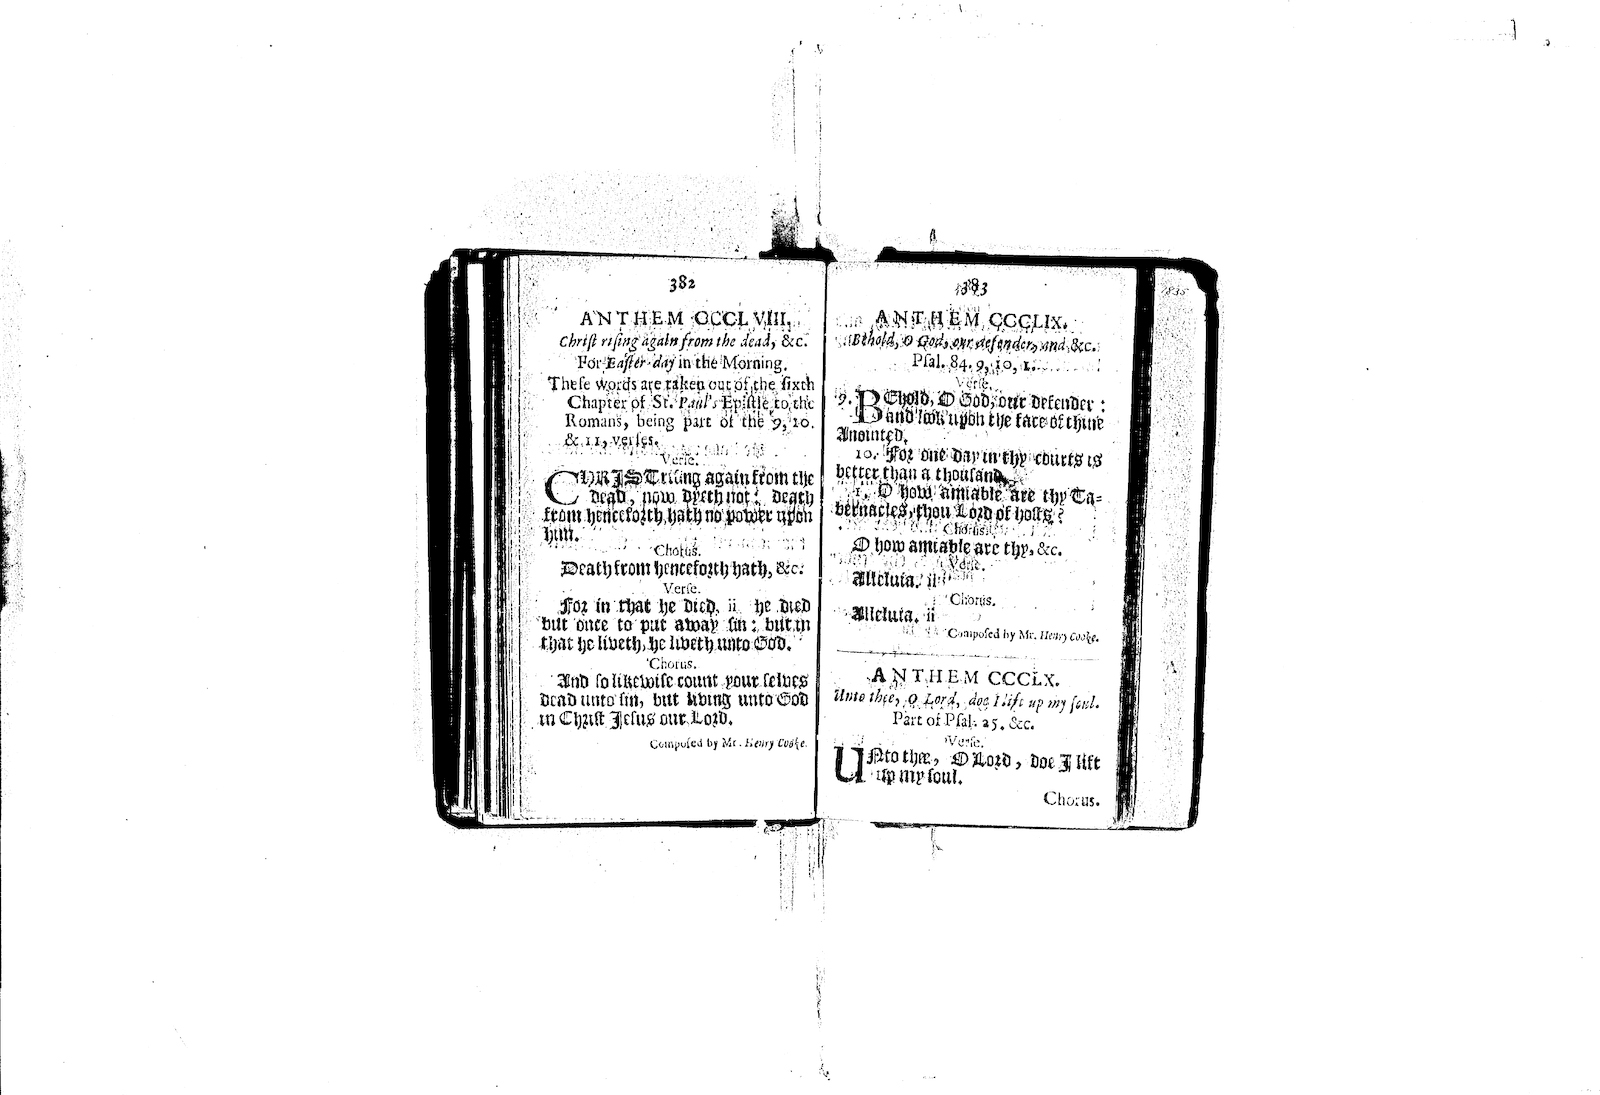 382
ANTHEM CCCLVIII.
Chriſt riſing again from the dead, &c.
For Eaſter-day in the Morning.
Theſe words are taken out of the ſixth
Chapter of St. Paul's Epiſtle to the
Romans, being part of the 9, 10.
& 11, verſes.
Verſe.
CHRIST riſing again from the
dead, now dyeth not: death
from henceforth hath no power upon
him.
Chorus.
Death from henceforth hath, &c.
Verſe.
For in that he died, ii he died
but once to put away ſin: but in
that he liveth, he liveth unto God.
Chorus.
And ſo likewiſe count your ſelves
dead unto ſin, but living unto God
in Chriſt Jeſus our Lord.
Compoſed by Mr. Henry Cooke.
383
ANTHEM CCCLIX.
Behold, O God, our defender, and, &c.
Pſal. 84. 9, 10, 1.
Verſe.
9. BEhold, O God, our defender:
and look upon the face of thine
Anointed.
10. For one day in thy courts is
better than a thouſand.
1. O how amiable are thy Ta-
bernacles, thou Lord of hoſts?
Chorus.
O how amiable are thy, &c.
Verſe.
Alleluia. ii
Chorus.
Alleluia. ii
Compoſed by Mr. Henry Cooke.
ANTHEM CCCLX.
Unto thee, O Lord, doe I lift up my ſoul.
Part of Pſal. 25. &c.
Verſe.
UNto thee, O Lord, doe I lift
up my ſoul.
Chorus.